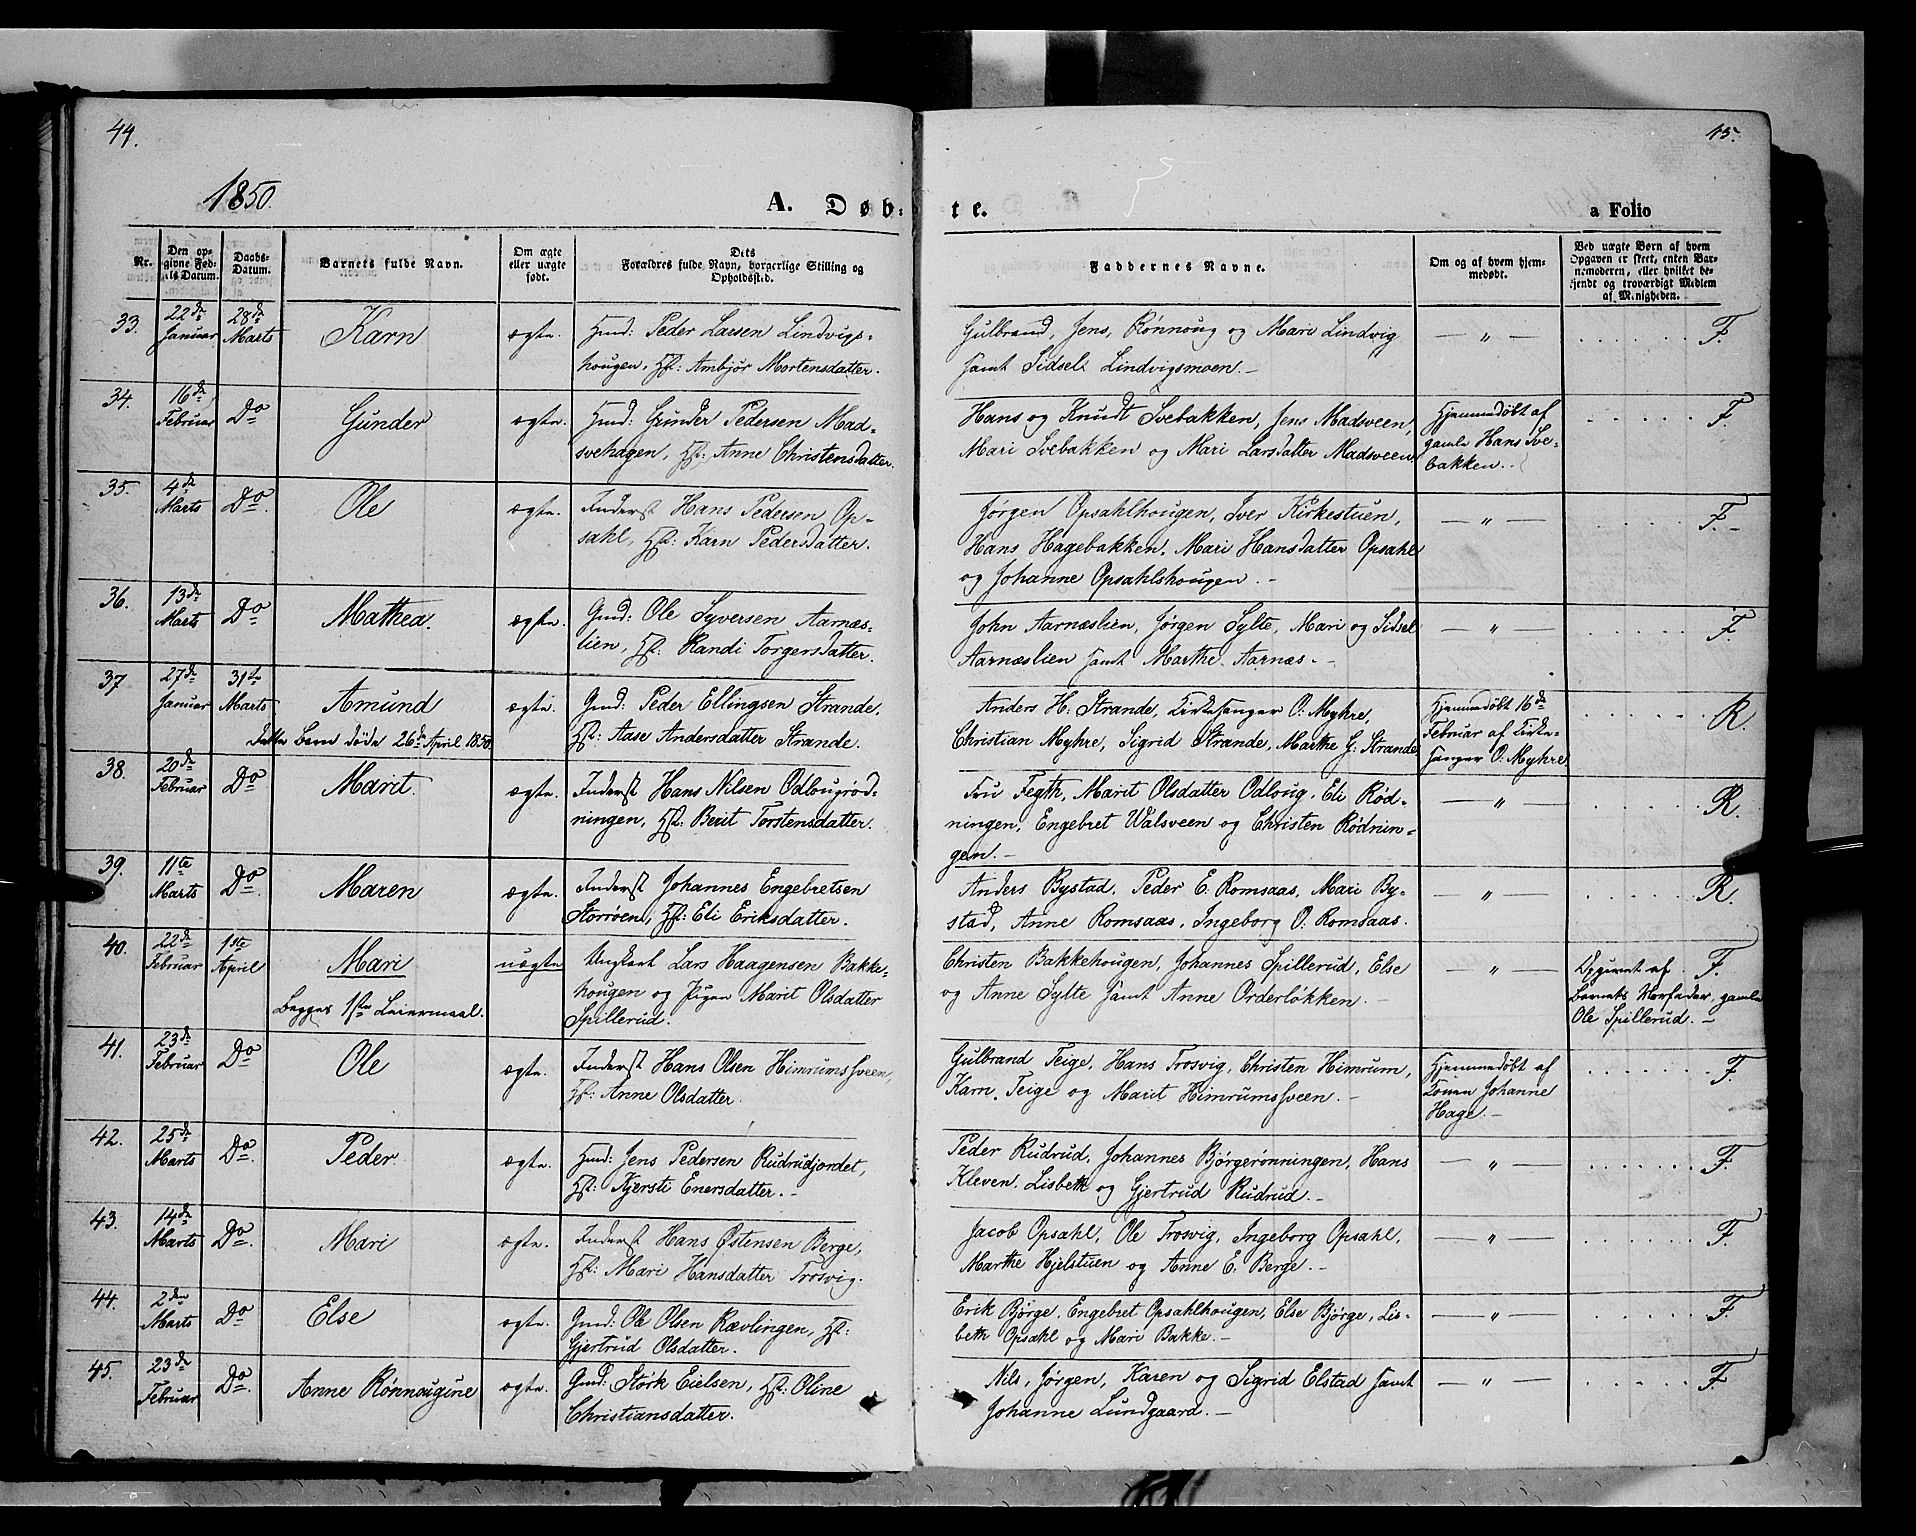 44.
45.
1850.
A. Døb-
te.
a Folio
Nr.
Den op-
givne Fød-
sels Datum.
Daabs-
Datum.
Barnets fulde Navn.
Om ægte
eller uægte
født.
Dets
Forældres fulde Navn, borgerlige Stilling og
Opholdssted.
Faddernes Navne.
Om og af hvem hjem-
medøbt.
Ved uægte Børn af hvem
Opgaven er skeet, enten Bar-
nemoderen, eller hvilket be-
kjendt og troværdigt Medlem
af Menigheden.
33. 22de Januar 28de Marts Karn ægte. Hmd: Peder Larsen Lindvigs-
hougen, Hst: Ambjør Mortensdatter.
Gulbrand, Jens, Rønnoug og Mari Lindvig
samt Sidsel Lindvigsmoen. — " — F.
34. 16de Februar Do Gunder ægte. Hmd: Gunder Pedersen Mad-
svehagen, Hst: Anne Christensdatter.
Hans og Knudt Svebakken, Jens Madsveen,
Mari Svebakken og Mari Larsdatter Madsveen.
Hjemmedøbt af
gamle Hans Sve-
bakken. F.
35. 4de Marts Do. Ole ægte. Inderst Hans Pedersen Op-
sahl, Hst: Karn Pedersdatter.
Jørgen Opsahlhougen, Iver Kirkestuen,
Hans Hagebakken, Mari Hansdatter Opsahl
og Johanne Opsahlshougen. — — " — F.
36. 13de Marts Do Mathea. ægte. Gmd: Ole Syversen Aarnæs-
lien, Hst: Randi Torgersdatter.
John Aarnæslien, Jørgen Sylte, Mari og Sidsel
Aarnæslien samt Marthe Aarnæs. — — " — F
37 27de Januar 31te Marts Amund ægte. Gmd: Peder Ellingsen Strande,
Hst: Aase Andersdatter Strande.
Dette Barn døde 26de April 1850.
Anders H. Strande, Kirkesanger O: Myhre,
Christian Myhre, Sigrid Strande, Marthe G: Strande
Hjemmedøbt 16de
Februar af Kirke-
sanger O: Myhre R.
38. 20de Februar Do Marit. ægte. Inderst Hans Nilsen Odlougrød-
ningen, Hst: Berit Torstensdatter.
Fru Fegth, Marit Olsdatter Odloug, Eli Rød-
ningen, Engebret Walsveen og Christen Rødnin-
gen. — — " — R.
39. 11te Marts Do. Maren ægte. Inderst Johannes Engebretsen
Storrøen, Hst: Eli Eriksdatter.
Anders Bystad, Peder E. Romsaas, Mari By-
stad, Anne Romsaas, Ingeborg O: Romsaas. — " — R.
40. 22de Februar 1ste April Mari uægte Ungkarl Lars Haagensen Bakke-
hougen og Pigen Marit Olsdatter
Spillerud.
Begges 1ste Leiermaal.
Christen Bakkehougen, Johannes Spillerud, Else
og Anne Sylte samt Anne Orderløkken. — — " —
Opgivet af F.
Barnets Morfader, gamle
Ole Spillerud. —
41. 23de Februar Do Ole ægte. Inderst Hans Olsen Himrumsveen,
Hst: Anne Olsdatter.
Gulbrand Teige, Hans Trosvig, Christen Himrum,
Karn Teige og Marit Himrumsveen. —
Hjemmedøbt af
Konen Johanne
Hage. — F.
42. 25de Marts Do. Peder ægte. Hmd: Jens Pedersen Rudrudjordet,
Hst: Kjersti Enersdatter. —
Peder Rudrud, Johannes Bjørgerønningen, Hans
Kleven, Lisbeth og Gjertrud Rudrud. — — " — F.
43. 14de Marts Do. Mari ægte. Inderst Hans Østensen Berge,
Hst: Mari Hansdatter Trosvig.
Jacob Opsahl, Ole Trosvig, Ingeborg Opsahl,
Marthe Hjelstuen og Anne E. Berge. — — " — F.
44. 2den Marts Do Else ægte. Gmd: Ole Olsen Rævlingen, Hst:
Gjertrud Olsdatter.
Erik Bjørge, Engebret Opsahlhougen, Else Bjørge, Lis-
beth Opsahl og Mari Bakke. — — " — F.
45. 23de Februar Do. Anne Rønnaugine ægte. Gmd: Størk Eielsen, Hst: Oline
Christiansdatter.
Nils, Jørgen, Karen og Sigrid Elstad samt
Johanne Lundgaard. — — " — F.